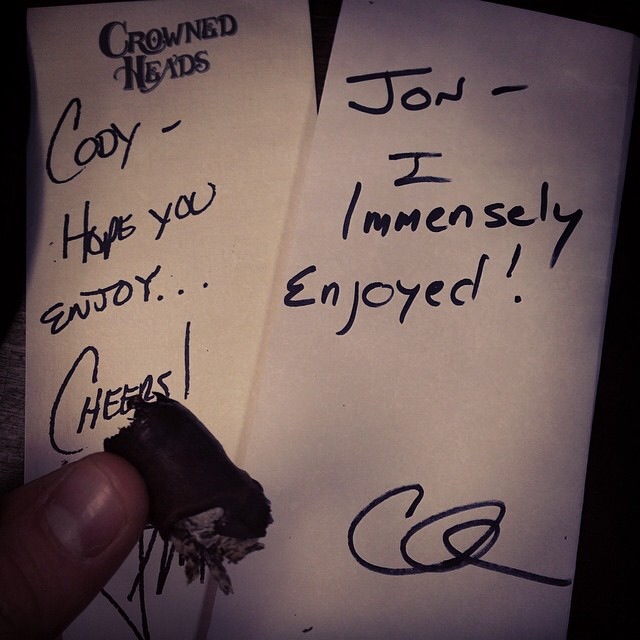 CROWNED
HEADS
CODY -
HOPE YOU
ENJOY...
CHEERS!
JON -
I
Immensely
Enjoyed!